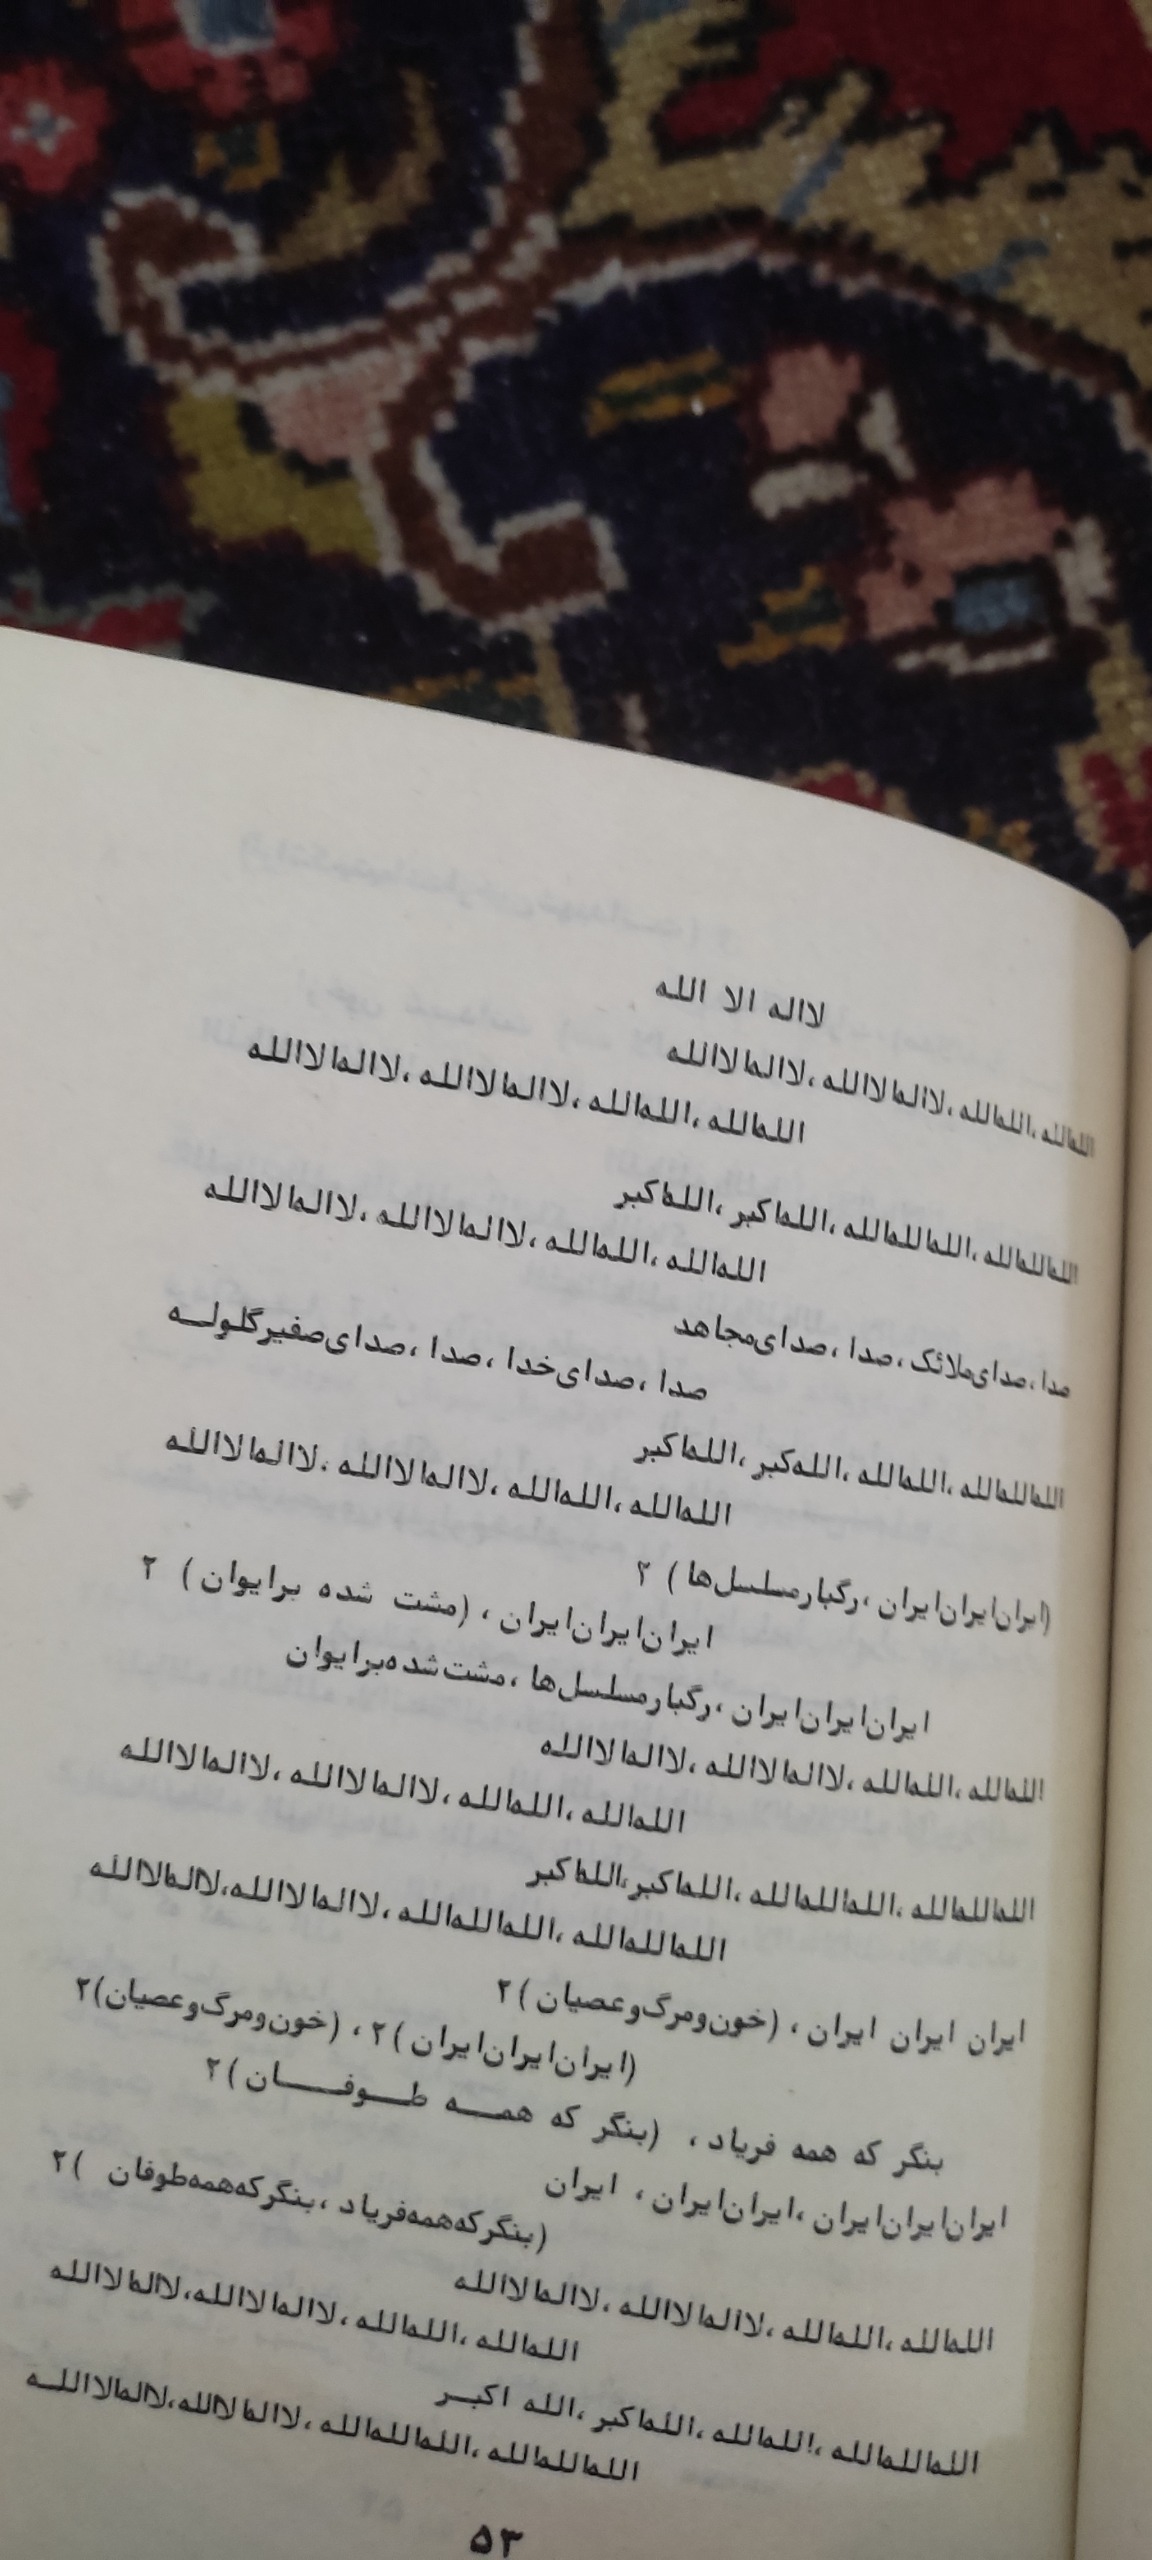 لااله الا الله
الله‌الله،الله‌الله،لااله‌الاالله،لااله‌الاالله
الله‌الله،الله‌الله،لااله‌الاالله،لااله‌الاالله
الله‌الله‌الله،الله‌الله‌الله،الله‌اکبر،الله‌اکبر
الله‌الله،الله‌الله،لااله‌الاالله،لااله‌الاالله
صدا،صدای‌ملائک،صدا،صدای‌مجاهد
صدا،صدای‌خدا،صدا،صدای‌صفیرگلولـه
الله‌الله‌الله،الله‌الله،الله‌کبر،الله‌اکبر
الله‌الله،الله‌الله،لااله‌الاالله،لااله‌الاالله
(ایران‌ایران‌ایران،رگبارمسلسل‌ها) ۲
ایران‌ایران‌ایران، (مشت شده برایوان) ۲
ایران‌ایران‌ایران،رگبارمسلسل‌ها،مشت‌شده‌برایوان
الله‌الله،الله‌الله،لااله‌الاالله،لااله‌الاالله
الله‌الله،الله‌الله،لااله‌الاالله،لااله‌الاالله
الله‌الله‌الله،الله‌الله‌الله،الله‌اکبر،الله‌اکبر
الله‌الله‌الله،الله‌الله‌الله،لااله‌الاالله،لااله‌الاالله
ایران ایران ایران، (خون‌ومرگ‌وعصیان)۲
(ایران‌ایران‌ایران)۲، (خون‌ومرگ‌وعصیان)۲
بنگر که همه فریاد، (بنگر که همـه طـوفـان)۲
ایران‌ایران‌ایران،ایران‌ایران، ایران
(بنگرکه‌همه‌فریاد،بنگرکه‌همه‌طوفان )۲
الله‌الله،الله‌الله،لااله‌الاالله،لااله‌الاالله
الله‌الله،الله‌الله،لااله‌الاالله،لااله‌الاالله
الله‌الله‌الله،الله‌الله،الله‌اکبر،الله اکبـر
الله‌الله‌الله،الله‌الله‌الله،لااله‌الاالله،لااله‌الااللـه
۵۳